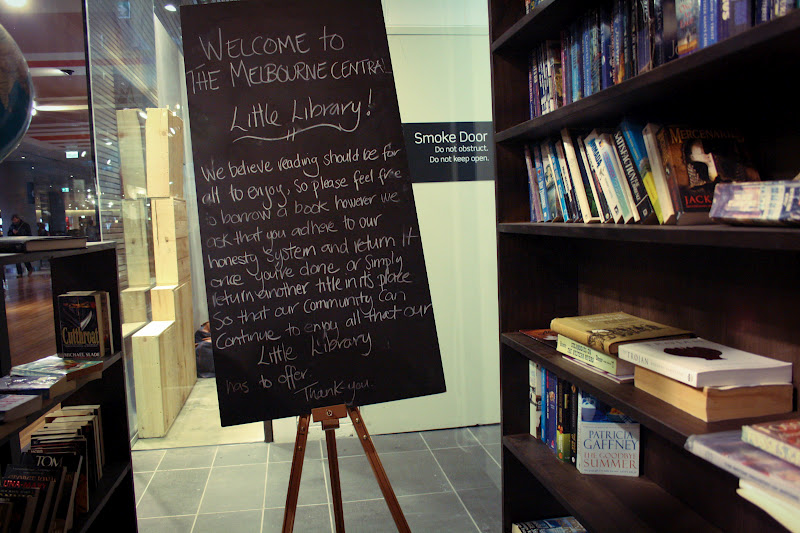 WELCOME TO
THE MELBOURNE CENTRAL
Little Library!
We believe reading should be for
all to enjoy, so please feel free
to borrow a book however we
ask that you adhere to our
honesty system and return it
once you're done or simply
return another title in its place
So that our Community can
Continue to enjoy all that our
Little Library
has to offer.
Thank-you.
Smoke Door
Do not obstruct.
Do not keep open.
Cutthroat
MICHAEL SLADE
TOM
MERCENARIES
JACK
TROJAN
PATRICIA
GAFFNEY
THE GOODBYE
SUMMER